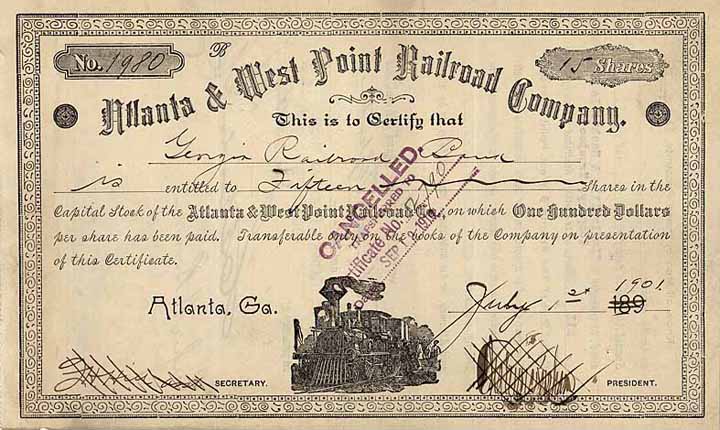 B
No. 1980
15 Shares
Atlanta & West Point Railroad Company.
This is to Certify that
Georgia Railroad Bank
is entitled to Fifteen Shares in the
Capital Stock of the Atlanta & West Point Railroad Co., on which One Hundred Dollars
per share has been paid. Transferable only on the books of the Company on presentation
of this Certificate.
CANCELLED.
Certificate No.
SEP
Atlanta, Ga.
July 1st 1901.
189
SECRETARY.
PRESIDENT.